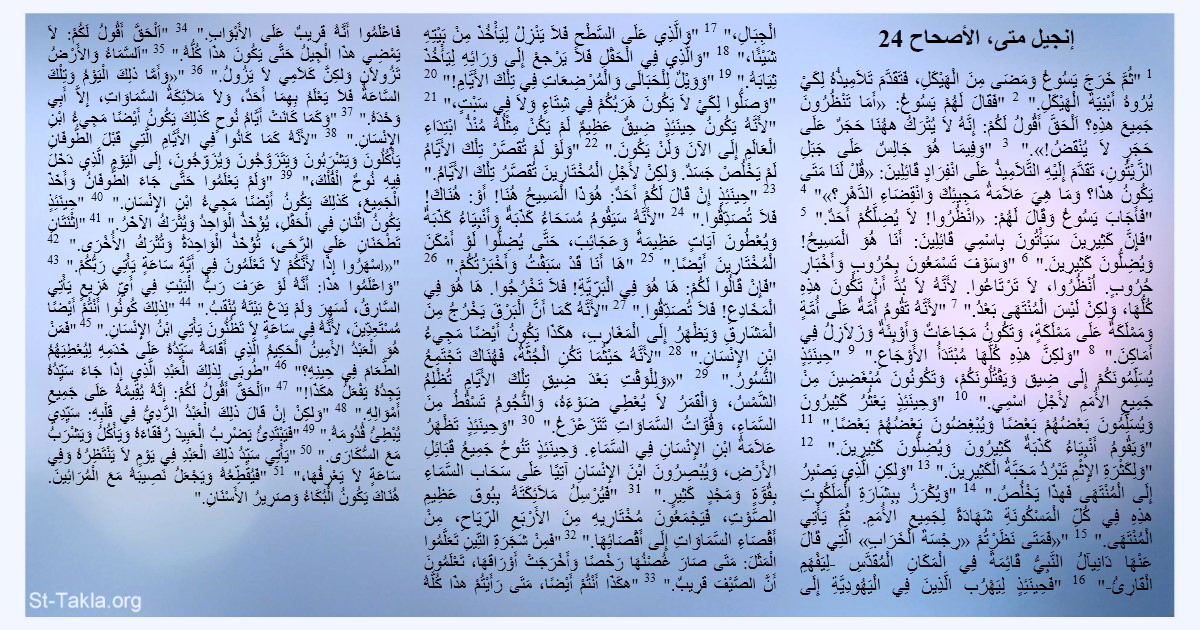 إنجيل متى، الأصحاح 24
1 "ثُمَّ خَرَجَ يَسُوعُ وَمَضَى مِنَ الْهَيْكَلِ، فَتَقَدَّمَ تَلاَمِيذُهُ لِكَيْ
يُرُوهُ أَبْنِيَةَ الْهَيْكَلِ." 2 "فَقَالَ لَهُمْ يَسُوعُ: «أَمَا تَنْظُرُونَ
جَمِيعَ هذِهِ؟ اَلْحَقَّ أَقُولُ لَكُمْ: إِنَّهُ لاَ يُتْرَكُ ههُنَا حَجَرٌ عَلَى
حَجَرٍ لاَ يُنْقَضُ!»." 3 "وَفِيمَا هُوَ جَالِسٌ عَلَى جَبَلِ
الزَّيْتُونِ، تَقَدَّمَ إِلَيْهِ التَّلاَمِيذُ عَلَى انْفِرَادٍ قَائِلِينَ: «قُلْ لَنَا مَتَى
يَكُونُ هذَا؟ وَمَا هِيَ عَلاَمَةُ مَجِيئِكَ وَانْقِضَاءِ الدَّهْرِ؟»" 4
"فَأَجَابَ يَسُوعُ وَقَالَ لَهُمْ: «انْظُرُوا! لاَ يُضِلَّكُمْ أَحَدٌ." 5
"فَإِنَّ كَثِيرِينَ سَيَأْتُونَ بِاسْمِي قَائِلِينَ: أَنَا هُوَ الْمَسِيحُ!
وَيُضِلُّونَ كَثِيرِينَ." 6 "وَسَوْفَ تَسْمَعُونَ بِحُرُوبٍ وَأَخْبَارِ
حُرُوبٍ. اُنْظُرُوا، لاَ تَرْتَاعُوا. لأَنَّهُ لاَ بُدَّ أَنْ تَكُونَ هذِهِ
كُلُّهَا، وَلكِنْ لَيْسَ الْمُنْتَهَى بَعْدُ." 7 "لأَنَّهُ تَقُومُ أُمَّةٌ عَلَى أُمَّةٍ
وَمَمْلَكَةٌ عَلَى مَمْلَكَةٍ، وَتَكُونُ مَجَاعَاتٌ وَأَوْبِئَةٌ وَزَلاَزِلُ فِي
أَمَاكِنَ." 8 "وَلكِنَّ هذِهِ كُلَّهَا مُبْتَدَأُ الأَوْجَاعِ." 9 "حِينَئِذٍ
يُسَلِّمُونَكُمْ إِلَى ضِيق وَيَقْتُلُونَكُمْ، وَتَكُونُونَ مُبْغَضِينَ مِنْ
جَمِيعِ الأُمَمِ لأَجْلِ اسْمِي." 10 "وَحِينَئِذٍ يَعْثُرُ كَثِيرُونَ
وَيُسَلِّمُونَ بَعْضُهُمْ بَعْضًا وَيُبْغِضُونَ بَعْضُهُمْ بَعْضًا." 11
"وَيَقُومُ أَنْبِيَاءُ كَذَبَةٌ كَثِيرُونَ وَيُضِلُّونَ كَثِيرِينَ." 12
"وَلِكَثْرَةِ الإِثْمِ تَبْرُدُ مَحَبَّةُ الْكَثِيرِينَ." 13 "وَلكِنِ الَّذِي يَصْبِرُ
إِلَى الْمُنْتَهَى فَهذَا يَخْلُصُ." 14 "وَيُكْرَزُ بِبِشَارَةِ الْمَلَكُوتِ
هذِهِ فِي كُلِّ الْمَسْكُونَةِ شَهَادَةً لِجَمِيعِ الأُمَمِ. ثُمَّ يَأْتِي
الْمُنْتَهَى." 15 "«فَمَتَى نَظَرْتُمْ «رِجْسَةَ الْخَرَابِ» الَّتِي قَالَ
عَنْهَا دَانِيآلُ النَّبِيُّ قَائِمَةً فِي الْمَكَانِ الْمُقَدَّسِ -لِيَفْهَمِ
الْقَارِئُ-" 16 "فَحِينَئِذٍ لِيَهْرُب الَّذِينَ فِي الْيَهُودِيَّةِ إِلَى
الْجِبَالِ،" 17 "وَالَّذِي عَلَى السَّطْحِ فَلاَ يَنْزِلْ لِيَأْخُذَ مِنْ بَيْتِهِ
شَيْئًا،" 18 "وَالَّذِي فِي الْحَقْلِ فَلاَ يَرْجعْ إِلَى وَرَائِهِ لِيَأْخُذَ
ثِيَابَهُ." 19 "وَوَيْلٌ لِلْحَبَالَى وَالْمُرْضِعَاتِ فِي تِلْكَ الأَيَّامِ!" 20
"وَصَلُّوا لِكَيْ لاَ يَكُونَ هَرَبُكُمْ فِي شِتَاءٍ وَلاَ فِي سَبْتٍ،" 21
"لأَنَّهُ يَكُونُ حِينَئِذٍ ضِيقٌ عَظِيمٌ لَمْ يَكُنْ مِثْلُهُ مُنْذُ ابْتِدَاءِ
الْعَالَمِ إِلَى الآنَ وَلَنْ يَكُونَ." 22 "وَلَوْ لَمْ تُقَصَّرْ تِلْكَ الأَيَّامُ
لَمْ يَخْلُصْ جَسَدٌ. وَلكِنْ لأَجْلِ الْمُخْتَارِينَ تُقَصَّرُ تِلْكَ الأَيَّامُ."
23 "حِينَئِذٍ إِنْ قَالَ لَكُمْ أَحَدٌ: هُوَذَا الْمَسِيحُ هُنَا! أَوْ: هُنَاكَ!
فَلاَ تُصَدِّقُوا." 24 "لأَنَّهُ سَيَقُومُ مُسَحَاءُ كَذَبَةٌ وَأَنْبِيَاءُ كَذَبَةٌ
وَيُعْطُونَ آيَاتٍ عَظِيمَةً وَعَجَائِبَ، حَتَّى يُضِلُّوا لَوْ أَمْكَنَ
الْمُخْتَارِينَ أَيْضًا." 25 "هَا أَنَا قَدْ سَبَقْتُ وَأَخْبَرْتُكُمْ." 26
"فَإِنْ قَالُوا لَكُمْ: هَا هُوَ فِي الْبَرِّيَّةِ! فَلاَ تَخْرُجُوا. هَا هُوَ فِي
الْمَخَادِعِ! فَلاَ تُصَدِّقُوا." 27 "لأَنَّهُ كَمَا أَنَّ الْبَرْقَ يَخْرُجُ مِنَ
الْمَشَارِقِ وَيَظْهَرُ إِلَى الْمَغَارِبِ، هكَذَا يَكُونُ أَيْضًا مَجِيءُ
ابْنِ الإِنْسَانِ." 28 "لأَنَّهُ حَيْثُمَا تَكُنِ الْجُثَّةُ، فَهُنَاكَ تَجْتَمِعُ
النُّسُورُ." 29 "«وَلِلْوَقْتِ بَعْدَ ضِيقِ تِلْكَ الأَيَّامِ تُظْلِمُ
الشَّمْسُ، وَالْقَمَرُ لاَ يُعْطِي ضَوْءَهُ، وَالنُّجُومُ تَسْقُطُ مِنَ
السَّمَاءِ، وَقُوَّاتُ السَّمَاوَاتِ تَتَزَعْزَعُ." 30 "وَحِينَئِذٍ تَظْهَرُ
عَلاَمَةُ ابْنِ الإِنْسَانِ فِي السَّمَاءِ. وَحِينَئِذٍ تَنُوحُ جَمِيعُ قَبَائِلِ
الأَرْضِ، وَيُبْصِرُونَ ابْنَ الإِنْسَانِ آتِيًا عَلَى سَحَابِ السَّمَاءِ
بِقُوَّةٍ وَمَجْدٍ كَثِيرٍ." 31 "فَيُرْسِلُ مَلاَئِكَتَهُ بِبُوق عَظِيمِ
الصَّوْتِ، فَيَجْمَعُونَ مُخْتَارِيهِ مِنَ الأَرْبَعِ الرِّيَاحِ، مِنْ
أَقْصَاءِ السَّمَاوَاتِ إِلَى أَقْصَائِهَا." 32 "فَمِنْ شَجَرَةِ التِّينِ تَعَلَّمُوا
الْمَثَلَ: مَتَى صَارَ غُصْنُهَا رَخْصًا وَأَخْرَجَتْ أَوْرَاقَهَا، تَعْلَمُونَ
أَنَّ الصَّيْفَ قَرِيبٌ." 33 "هكَذَا أَنْتُمْ أَيْضًا، مَتَى رَأَيْتُمْ هذَا كُلَّهُ
فَاعْلَمُوا أَنَّهُ قَرِيبٌ عَلَى الأَبْوَابِ." 34 "اَلْحَقَّ أَقُولُ لَكُمْ: لاَ
يَمْضِي هذَا الْجِيلُ حَتَّى يَكُونَ هذَا كُلُّهُ." 35 "اَلسَّمَاءُ وَالأَرْضُ
تَزُولاَنِ وَلكِنَّ كَلاَمِي لاَ يَزُولُ." 36 "«وَأَمَّا ذلِكَ الْيَوْمُ وَتِلْكَ
السَّاعَةُ فَلاَ يَعْلَمُ بِهِمَا أَحَدٌ، وَلاَ مَلاَئِكَةُ السَّمَاوَاتِ، إِلاَّ أَبِي
وَحْدَهُ." 37 "وَكَمَا كَانَتْ أَيَّامُ نُوحٍ كَذلِكَ يَكُونُ أَيْضًا مَجِيءُ ابْنِ
الإِنْسَانِ." 38 "لأَنَّهُ كَمَا كَانُوا فِي الأَيَّامِ الَّتِي قَبْلَ الطُّوفَانِ
يَأْكُلُونَ وَيَشْرَبُونَ وَيَتَزَوَّجُونَ وَيُزَوِّجُونَ، إِلَى الْيَوْمِ الَّذِي دَخَلَ
فِيهِ نُوحٌ الْفُلْكَ،" 39 "وَلَمْ يَعْلَمُوا حَتَّى جَاءَ الطُّوفَانُ وَأَخَذَ
الْجَمِيعَ، كَذلِكَ يَكُونُ أَيْضًا مَجِيءُ ابْنِ الإِنْسَانِ." 40 "حِينَئِذٍ
يَكُونُ اثْنَانِ فِي الْحَقْلِ، يُؤْخَذُ الْوَاحِدُ وَيُتْرَكُ الآخَرُ." 41 "اِثْنَتَانِ
تَطْحَنَانِ عَلَى الرَّحَى، تُؤْخَذُ الْوَاحِدَةُ وَتُتْرَكُ الأُخْرَى." 42
"«اِسْهَرُوا إِذًا لأَنَّكُمْ لاَ تَعْلَمُونَ فِي أَيَّةِ سَاعَةٍ يَأْتِي رَبُّكُمْ." 43
"وَاعْلَمُوا هذَا: أَنَّهُ لَوْ عَرَفَ رَبُّ الْبَيْتِ فِي أَيِّ هَزِيعٍ يَأْتِي
السَّارِقُ، لَسَهِرَ وَلَمْ يَدَعْ بَيْتَهُ يُنْقَبُ." 44 "لِذلِكَ كُونُوا أَنْتُمْ أَيْضًا
مُسْتَعِدِّينَ، لأَنَّهُ فِي سَاعَةٍ لاَ تَظُنُّونَ يَأْتِي ابْنُ الإِنْسَانِ." 45 "فَمَنْ
هُوَ الْعَبْدُ الأَمِينُ الْحَكِيمُ الَّذِي أَقَامَهُ سَيِّدُهُ عَلَى خَدَمِهِ لِيُعْطِيَهُمُ
الطَّعَامَ فِي حِينِهِ؟" 46 "طُوبَى لِذلِكَ الْعَبْدِ الَّذِي إِذَا جَاءَ سَيِّدُهُ
يَجِدُهُ يَفْعَلُ هكَذَا!" 47 "اَلْحَقَّ أَقُولُ لَكُمْ: إِنَّهُ يُقِيمُهُ عَلَى جَمِيعِ
أَمْوَالِهِ." 48 "وَلكِنْ إِنْ قَالَ ذلِكَ الْعَبْدُ الرَّدِيُّ فِي قَلْبِهِ: سَيِّدِي
يُبْطِئُ قُدُومَهُ." 49 "فَيَبْتَدِئُ يَضْرِبُ الْعَبِيدَ رُفَقَاءَهُ وَيَأْكُلُ وَيَشْرَبُ
مَعَ السُّكَارَى." 50 "يَأْتِي سَيِّدُ ذلِكَ الْعَبْدِ فِي يَوْمٍ لاَ يَنْتَظِرُهُ وَفِي
سَاعَةٍ لاَ يَعْرِفُهَا،" 51 "فَيُقَطِّعُهُ وَيَجْعَلُ نَصِيبَهُ مَعَ الْمُرَائِينَ.
هُنَاكَ يَكُونُ الْبُكَاءُ وَصَرِيرُ الأَسْنَانِ."
St-Takla.org